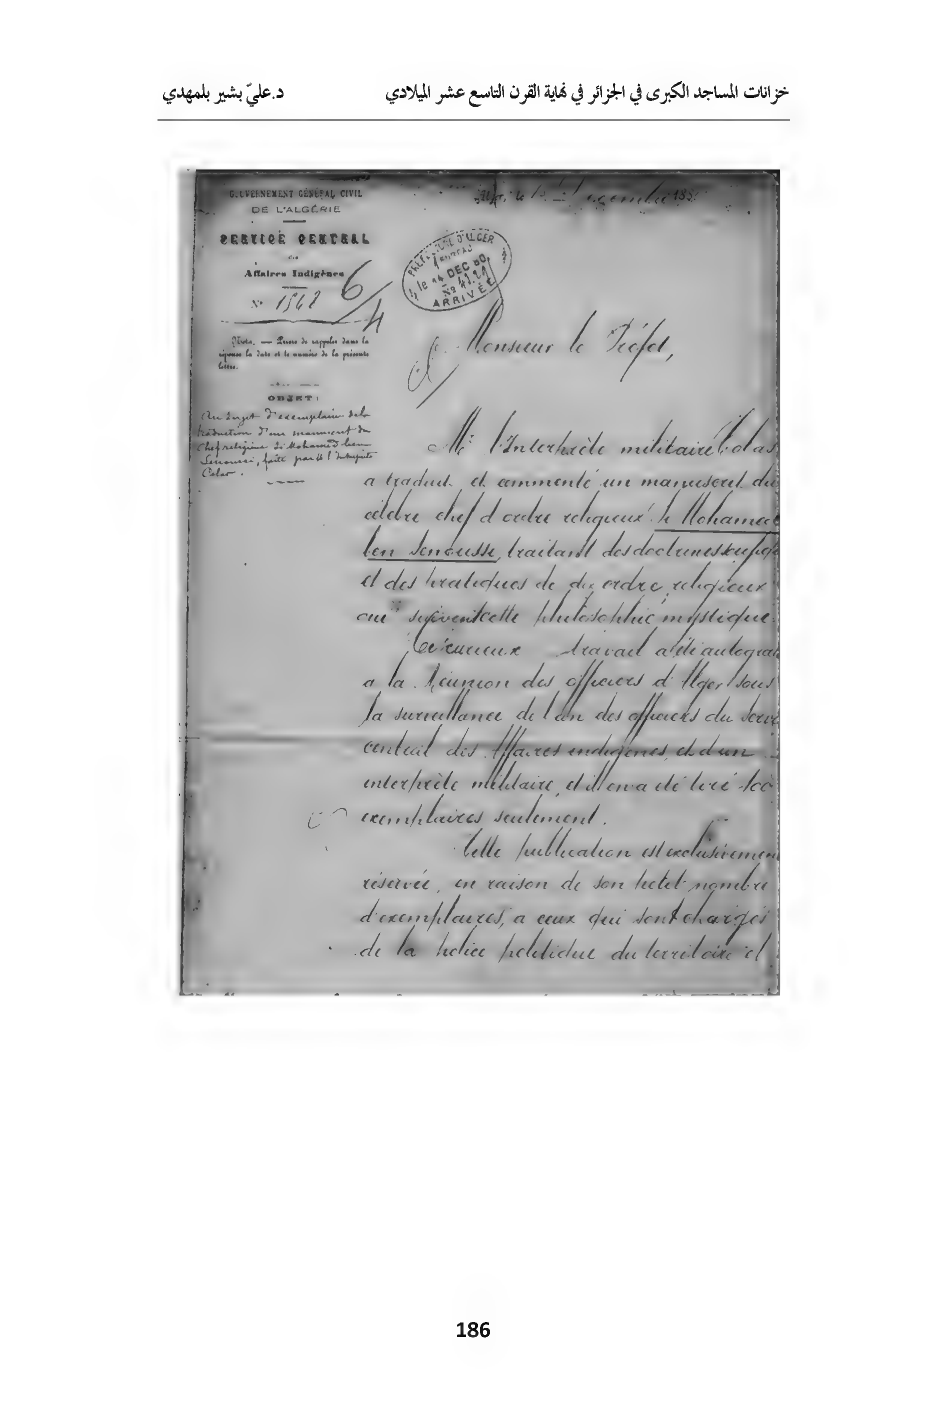 خزانات المساجد الكبرى في الجزائر في نهاية القرن التاسع عشر الميلادي د.عليّ بشير بلمهدي
GOUVERNEMENT GÉNÉRAL CIVIL
DE L'ALGÉRIE
SERVICE CENTRAL
des
Affaires Indigènes
N° 1548
6/4
NOTA. — Prière de rappeler dans la
réponse la date et le numéro de la présente
lettre.
OBJET:
Au sujet d'exemplaire de la
traduction d'un manuscrit du
Chef religieux Si Mohamed ben
Senoussi, faite par M. l'Interprète
Colas.
PRÉFECTURE D'ALGER
le 14 DEC 80
ARRIVÉE
Monsieur le Préfet,
Mr l'Interprète militaire Colas
a traduit et commenté un manuscrit du
célèbre chef d'ordre religieux Si Mohamed
ben Senoussi, traitant des doctrines
et des pratiques de dix ordres religieux
qui suivent cette philosophie mystique.
Ce curieux travail a été autogra
a la Réunion des officiers d'Alger sous
la surveillance de l'un des officiers du Servi
central des Affaires indigènes, et d'un
interprète militaire, et il en a été tiré 100
exemplaires seulement.
Cette publication est exclusivement
réservée, en raison de son petit nombre
d'exemplaires, a ceux qui sont chargés
de la police politique du territoire et
186